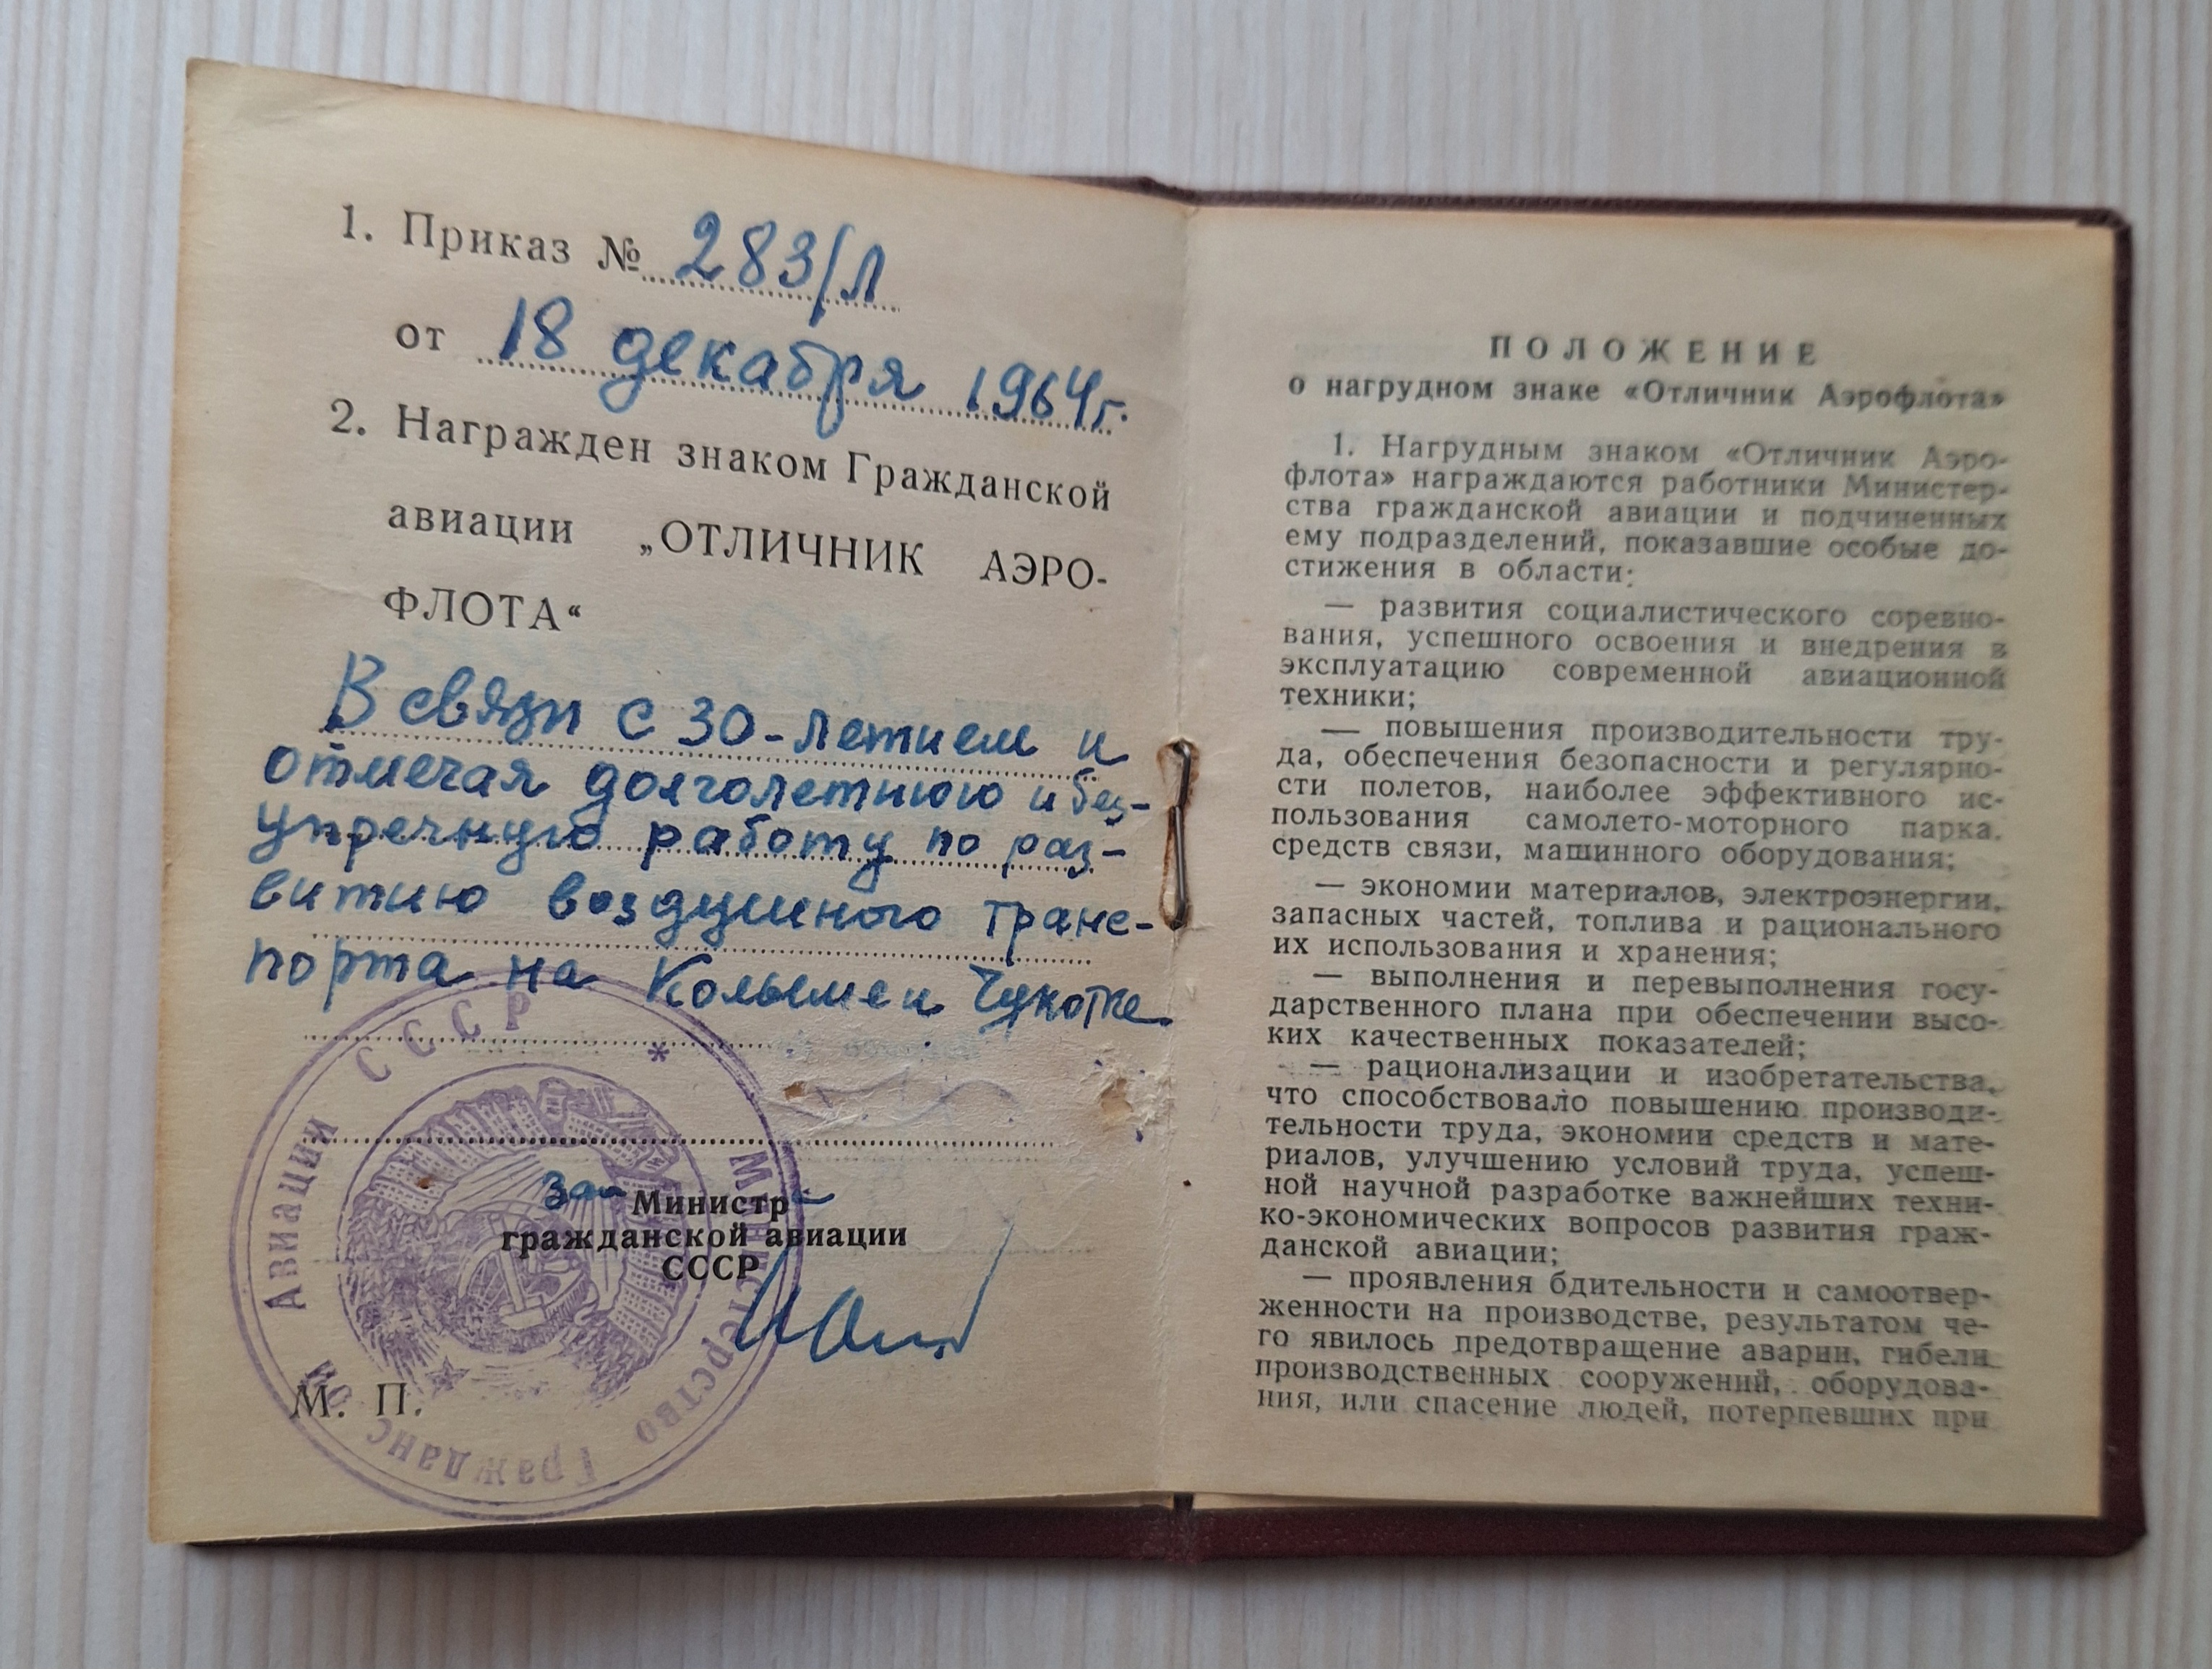 1. Приказ № 283/Л
от 18 декабря 1964г.
2. Награжден знаком Гражданской
авиации „ОТЛИЧНИК АЭРО-
ФЛОТА“
В связи с 30-летием и
отмечая долголетнюю и без-
упречную работу по раз-
витию воздушного транс-
порта на Колыме и Чукотке.
За Министра
гражданской авиации
СССР
М. П.
Министерство Гражданской Авиации СССР *
ПОЛОЖЕНИЕ
о нагрудном знаке «Отличник Аэрофлота»
1. Нагрудным знаком «Отличник Аэро-
флота» награждаются работники Министер-
ства гражданской авиации и подчиненных
ему подразделений, показавшие особые до-
стижения в области:
— развития социалистического соревно-
вания, успешного освоения и внедрения в
эксплуатацию современной авиационной
техники;
— повышения производительности тру-
да, обеспечения безопасности и регулярно-
сти полетов, наиболее эффективного ис-
пользования самолето-моторного парка,
средств связи, машинного оборудования;
— экономии материалов, электроэнергии,
запасных частей, топлива и рационального
их использования и хранения;
— выполнения и перевыполнения госу-
дарственного плана при обеспечении высо-
ких качественных показателей;
— рационализации и изобретательства,
что способствовало повышению производи-
тельности труда, экономии средств и мате-
риалов, улучшению условий труда, успеш-
ной научной разработке важнейших техни-
ко-экономических вопросов развития граж-
данской авиации;
— проявления бдительности и самоотвер-
женности на производстве, результатом че-
го явилось предотвращение аварии, гибели
производственных сооружений, оборудова-
ния, или спасение людей, потерпевших при